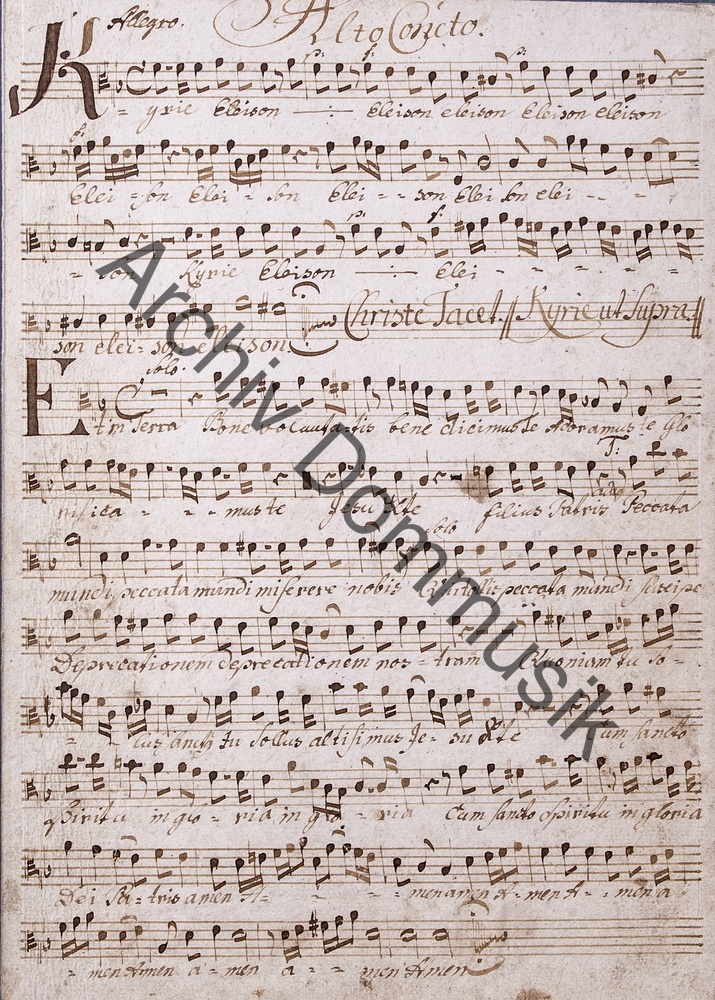 Allegro.
Alto Concto.
Kyrie Eleison eleison eleison Eleison eleison
Elei - son Elei - son Elei - - son Elei son elei - - -
- son Kyrie Eleison Elei - - - - - -
son elei - son elleison. Christe Tacet. Kyrie ut Supra.
Solo.
Et in Terra Bone bene dicimus te Adoramus te Glo
T:
rifica - - - mus te Jesu Xte filius Patris Peccata
solo
mundi peccata mundi miserere nobis Qui tollis peccata mundi suscipe
Deprecationem deprecationem nos - tram Quoniam tu so -
- - tu sollus altisimus Je - su Xte Cum sancto
Spiritu in glo - ria in glo - ria Cum sancto Spiritu in gloria
Dei Pa - tris amen A - - - - men amen A - men A - - men a
- men Amen a - men a - - men Amen
Archiv Dommusik